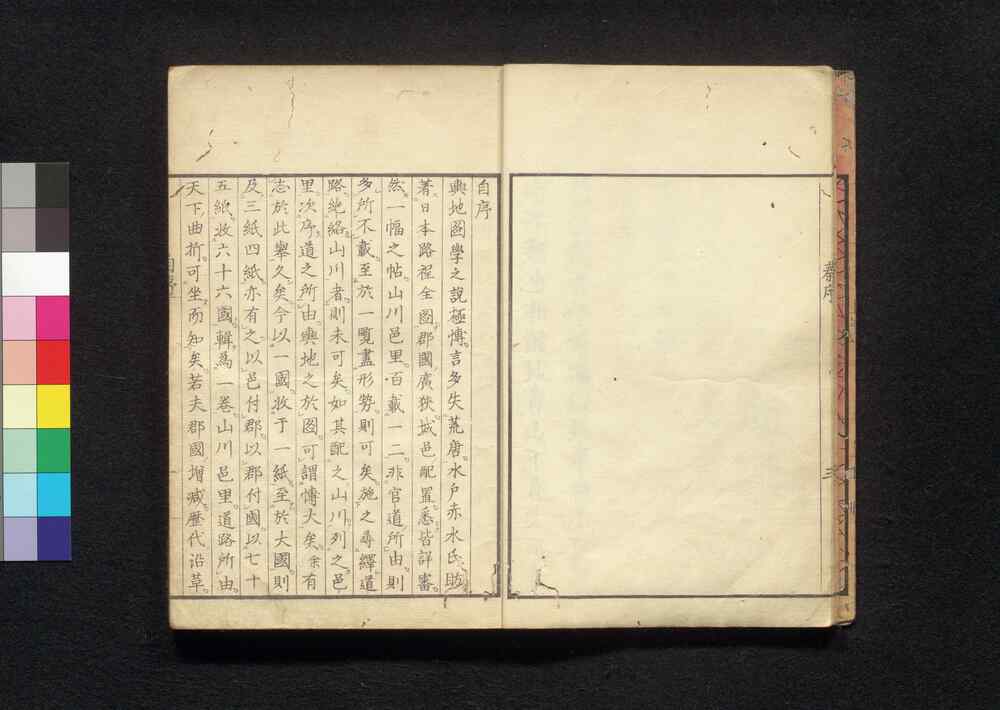 蔡序
三
自序
輿地圖學之說極博言多失荒唐水戶赤水氏眆
著日本路程全圖郡國廣狹城邑配置悉皆詳審
然一幅之帖山川邑里百載一二非官道所由則
多所不載至於一覽盡形勢則可矣施之尋繹道
路絶絡山川者則未可矣如其配之山川列之邑
里次序道之所由輿地之於圖可謂博大矣余有
志於此擧久矣今以一國收于一紙至於大國則
及三紙四紙亦有之以邑付郡以郡付國以七十
五紙收六十六國輯爲一卷山川邑里道路所由
天下曲折可坐而知矣若夫郡國增減歷代沿革
自序